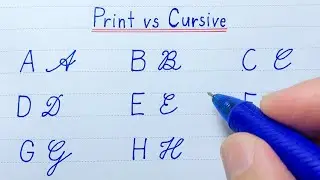 Print vs Cursive
A A B B C C
D D E E F
G G H H